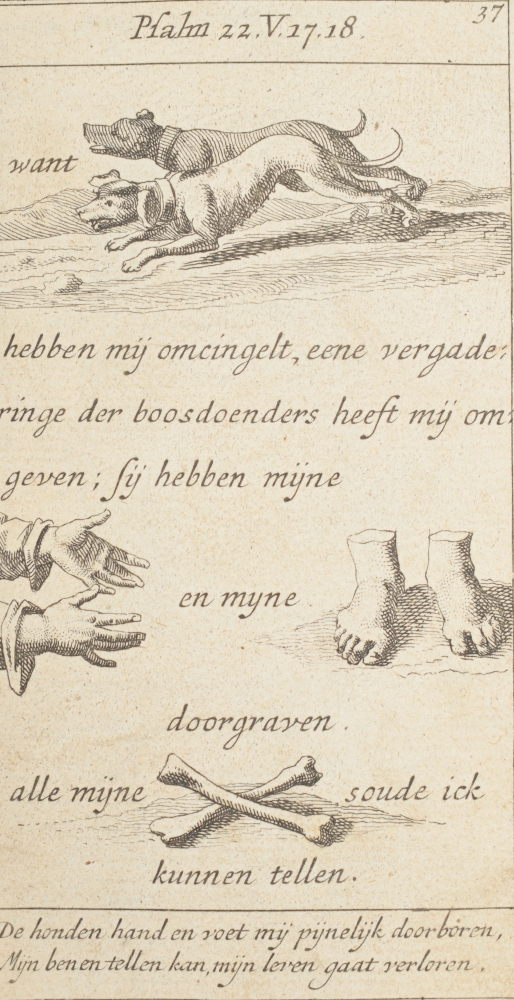 37
Psalm 22.V.17.18.
want
hebben mij omcingelt, eene vergade:
ringe der boosdoenders heeft mij om:
geven; sij hebben mijne
en myne
doorgraven.
alle mijne soude ick
kunnen tellen.
De honden hand en voet mij pijnelijk doorboren,
Mijn benen tellen kan, mijn leven gaat verloren.